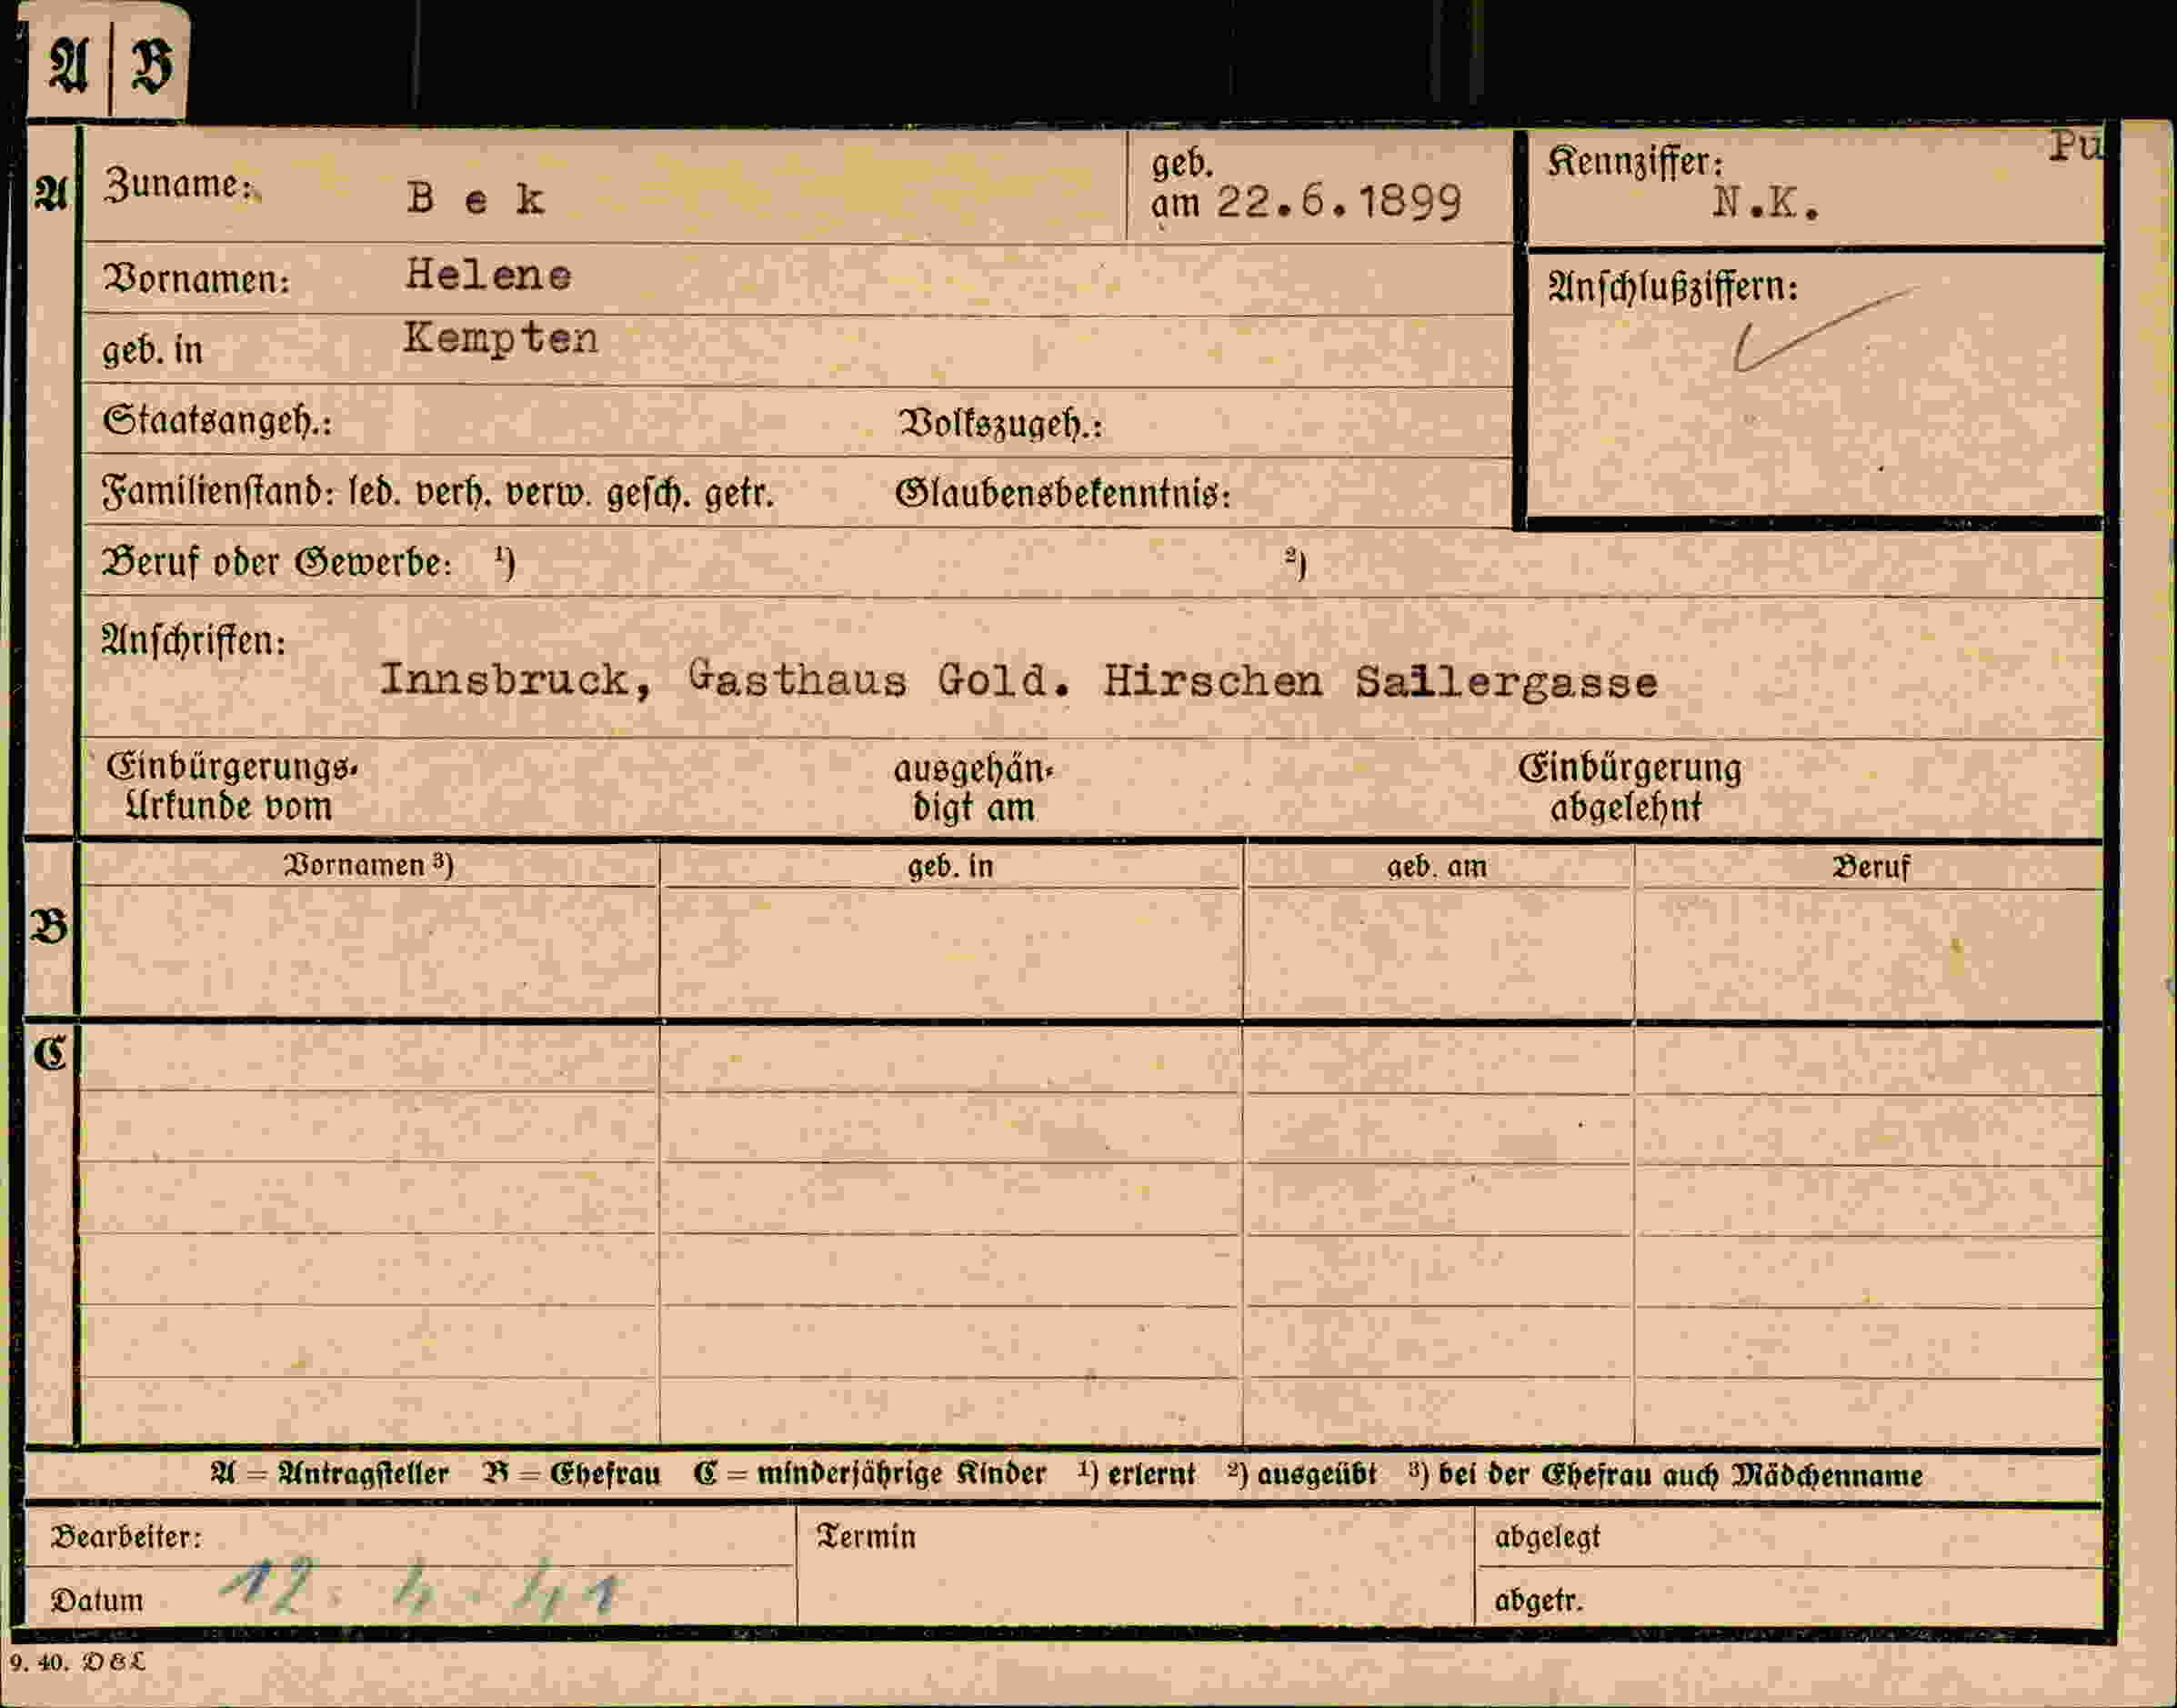 A | B
Pu
A Zuname: B e k geb. am 22.6.1899 Kennziffer: N.K.
Vornamen: Helene Anschlußziffern:
geb. in Kempten
Staatsangeh.: Volkszugeh.:
Familienstand: led. verh. verw. gesch. getr. Glaubensbekenntnis:
Beruf oder Gewerbe: ¹) ²)
Anschriften:
Innsbruck, Gasthaus Gold. Hirschen Sailergasse
Einbürgerungs- ausgehän- Einbürgerung
Urkunde vom digt am abgelehnt
Vornamen ³) geb. in geb. am Beruf
B
C
A = Antragsteller B = Ehefrau C = minderjährige Kinder ¹) erlernt ²) ausgeübt ³) bei der Ehefrau auch Mädchenname
Bearbeiter: Termin abgelegt
Datum 12. 4. 41 abgetr.
9. 40. D & L